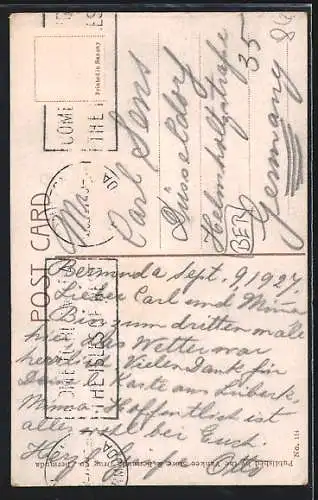 POST CARD
Printed in Saxony
COME
THE
Carl Sens
Düsseldorf
Helmholtzstraße
35
Germany
BER
Bermuda Sept. 9, 1927.
Lieber Carl und Minna
Bin zum dritten male
hier, das Wetter war
herrlich. Vielen Dank für
Deine Karte aus Lübeck.
Minna. Hoffentlich ist
alles wohl bei Euch.
Herzl. Grüße Otto
Published by the Yankee Store & Bermuda Drug Co., Bermuda